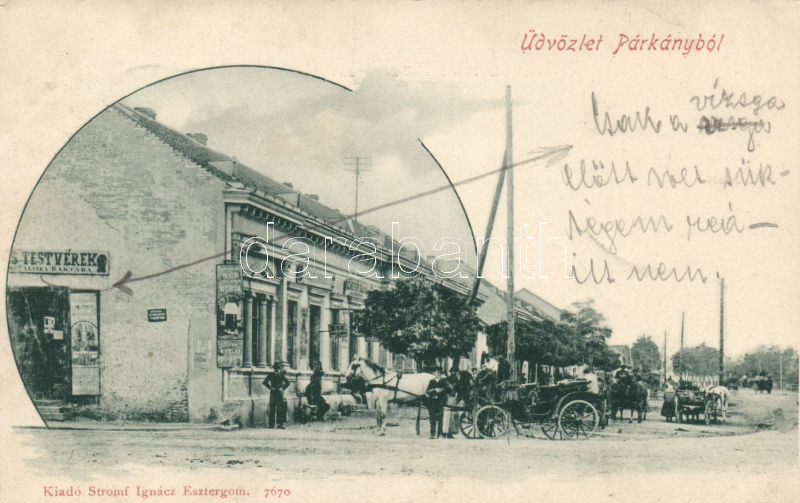 Üdvözlet Párkányból
Csak a vizsga
előtt volt szük-
ségem reá—
itt nem.
TESTVÉREK
PÁLINKA RAKTÁRA
darabanth.com
Kiadó Stromf Ignácz Esztergom. 7670